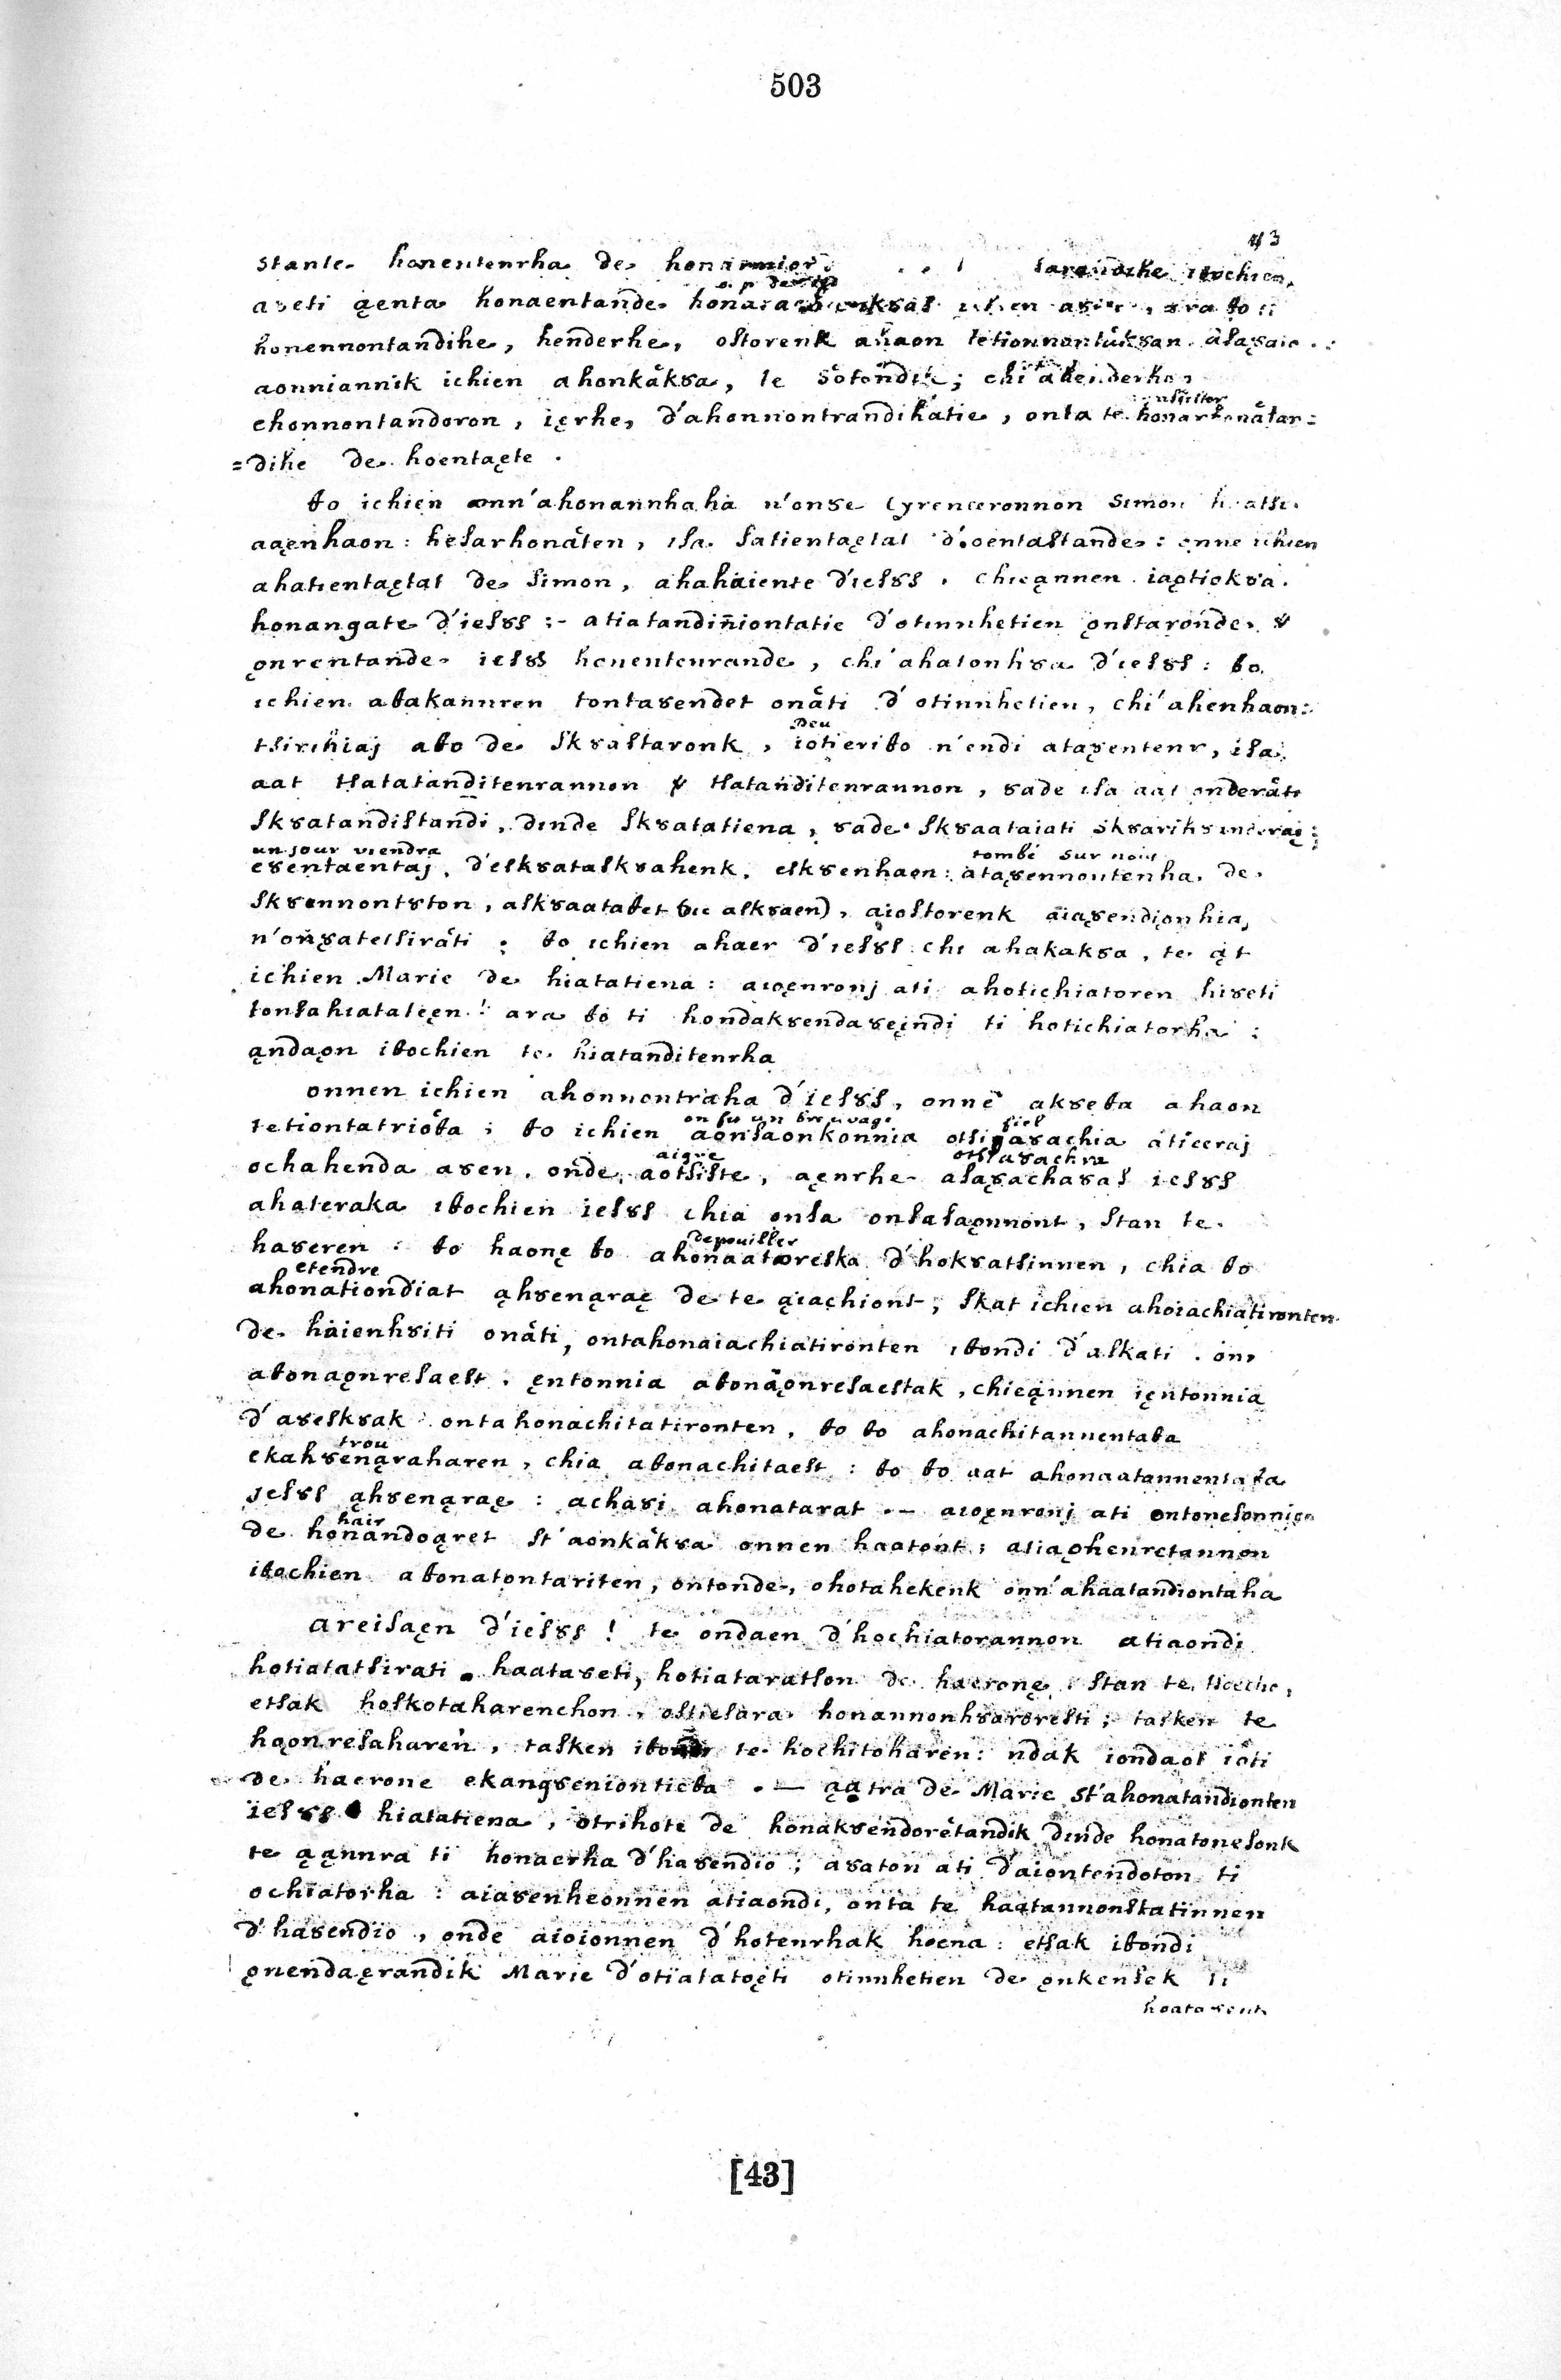 503
43
stante honentenrha de
aȣeti ąenta honaentande
honennontandihe, henderhe, ostorenk ahaon
aonniannik ichien ahonkäkȣa, te
ehonnontandoron, ięrhe, d'ahonnontrandihatie, onta te
=dihe de hoentaęte .
to ichien onn'ahonannhaha n'onȣe Cyreneeronnon Simon
aaęnhaon : hesarhonäten, isa satientaętat d'oentastande : onne ichien
ahatientaętat de Simon, ahahaiente d'iesȣs . chieąnnen iaętiokȣa
honangate d'iesȣs :- atiatandiniontatie d'otinnhetien ǫnstaronde, &
ǫnrentande iesȣs honentenrande, chi'ahatonhȣa d'iesȣs : to
ichien atakannren tontaȣendet onäti d'otinnhetien, chi'ahenhaon :
Deu
tsirihiaj ato de skȣastaronk, iotierito n'endi ataȣentenr, isa
aat tsatatanditenrannon & tsatanditenrannon, ȣade isa aat onderäti
skȣatandistandi, dinde skȣatatiena, ȣade skȣaataiati
un jour viendra tombé sur nous
eȣentaentaj, d'eskȣataskȣahenk, eskȣenhaon : ataȣennontenha, de
skȣannontston, askȣaatatet askȣaen), aiostorenk aiaȣendionhia,
n'onȣatessiräti ; to ichien ahaer d'iesȣs chi ahakakȣa, te ąt
ichien Marie de hiatatiena : aioęnronj ati ahotichiatoren hiȣeti
tonsahiatateęn ! ara to ti hondakȣendaȣęindi ti hotichiatorha :
ąndaǫn itochien te hiatanditenrha
onnen ichien ahonnontraha d'iesȣs, onne akȣeta ahaon
on fu un breuvage fiel
tetiontatriöta ; to ichien aonsaonkonnia otsiȣaȣachia aticeraj
aigre otsiaȣachia
ochahenda aȣen, onde, aotsiste, aęnrhe asaȣachaȣas iesȣs
ahateraka itochien iesȣs chia onsa onsasaǫnnont, stan te
depouiller
haȣeren : to haonę to ahonaatoreska d'hokȣatsinnen, chia to
etendre
ahonationdiat ąhȣenąraę de te ąiachiont ; skat ichien ahoiachiatironten
de haienhȣiti onäti, ontahonaiachiatironten itondi d'askati . onn
atonaǫnresaest . ęntonnia atonäǫnresaestak, chieąnnen ięntonnia
d'aȣeskȣak ontahonachitatironten, to to ahonachitannentata
trou
ekahȣenąraharen, chia atonachitaest : to to aat ahonaatannentata
jesȣs ąhȣenąraę : achaȣi ahonatarat .— aioęnronj ati
hair
de honandoąret st'aonkäkȣa onnen haatont ; atiaǫhenretannon
itochien atonatontariten, ontonde, ohotahekenk onn'ahaatandiontaha
areisaęn d'iesȣs ! te ondaen d'hochiatorannon atiaondi
hotiatatsirati haataȣeti, hotiataratson de haeronę, stan te
etsak hoskotaharenchon, ostiesara honannonhȣaroresti ; tasken te
haǫnresaharen, tasken te hochitoharen : ndak iondaǫt iäti
de haerone ekangȣeniontieta .— ąątra de Marie st'ahonatandionten
iesȣs hiatatiena, otrihote de honakȣendoretandik dinde honatonesonk
te ąąnnra ti honaerha d'haȣendio ; aȣaton ati d'aiontendoton ti
ochiatorha : aiaȣenheonnen atiaondi, onta te haatannonstatinnen
d'haȣendio, onde aioionnen d'hotenrhak hoena : etsak itondi
ǫnendaęrandik Marie d'otiatatoęti otinnhetien de ǫnkensek ti
[43]